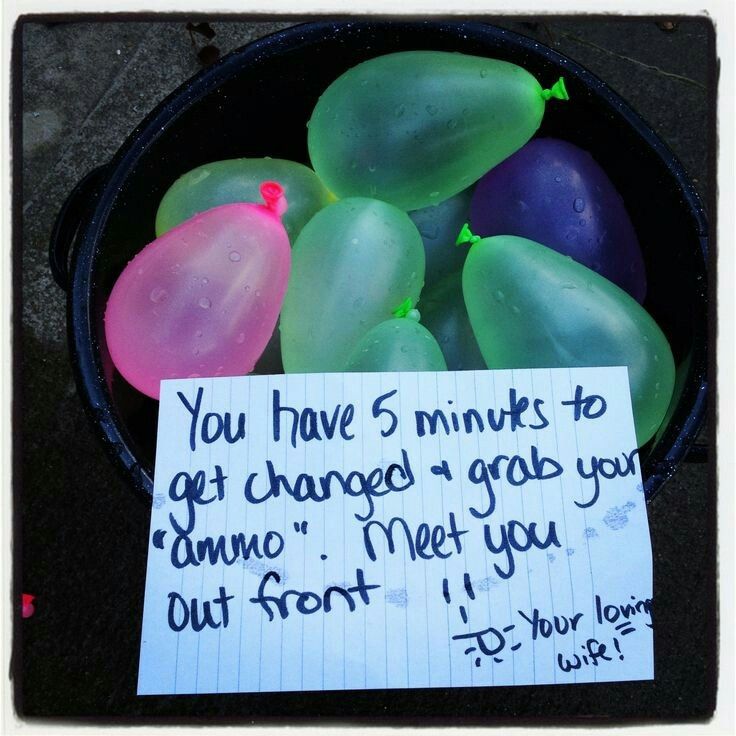 You have 5 minutes to
get changed & grab your
"ammo". Meet you
out front !!
- Your loving
wife!